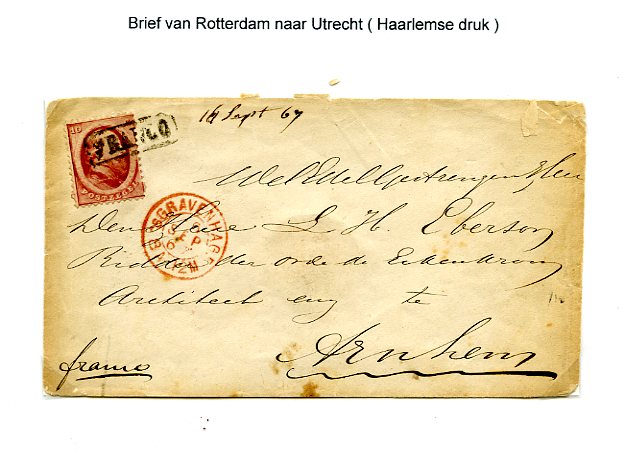 Brief van Rotterdam naar Utrecht ( Haarlemse druk )
14 Sept 67
10
FRANCO
POSTZEGEL
WelEdelGestrengen Heer
Den Heere L H Eberson
Ridder der orde de Eikenkroon
Architect enz te
Arnhem
'SGRAVENHAGE
SEP
franco